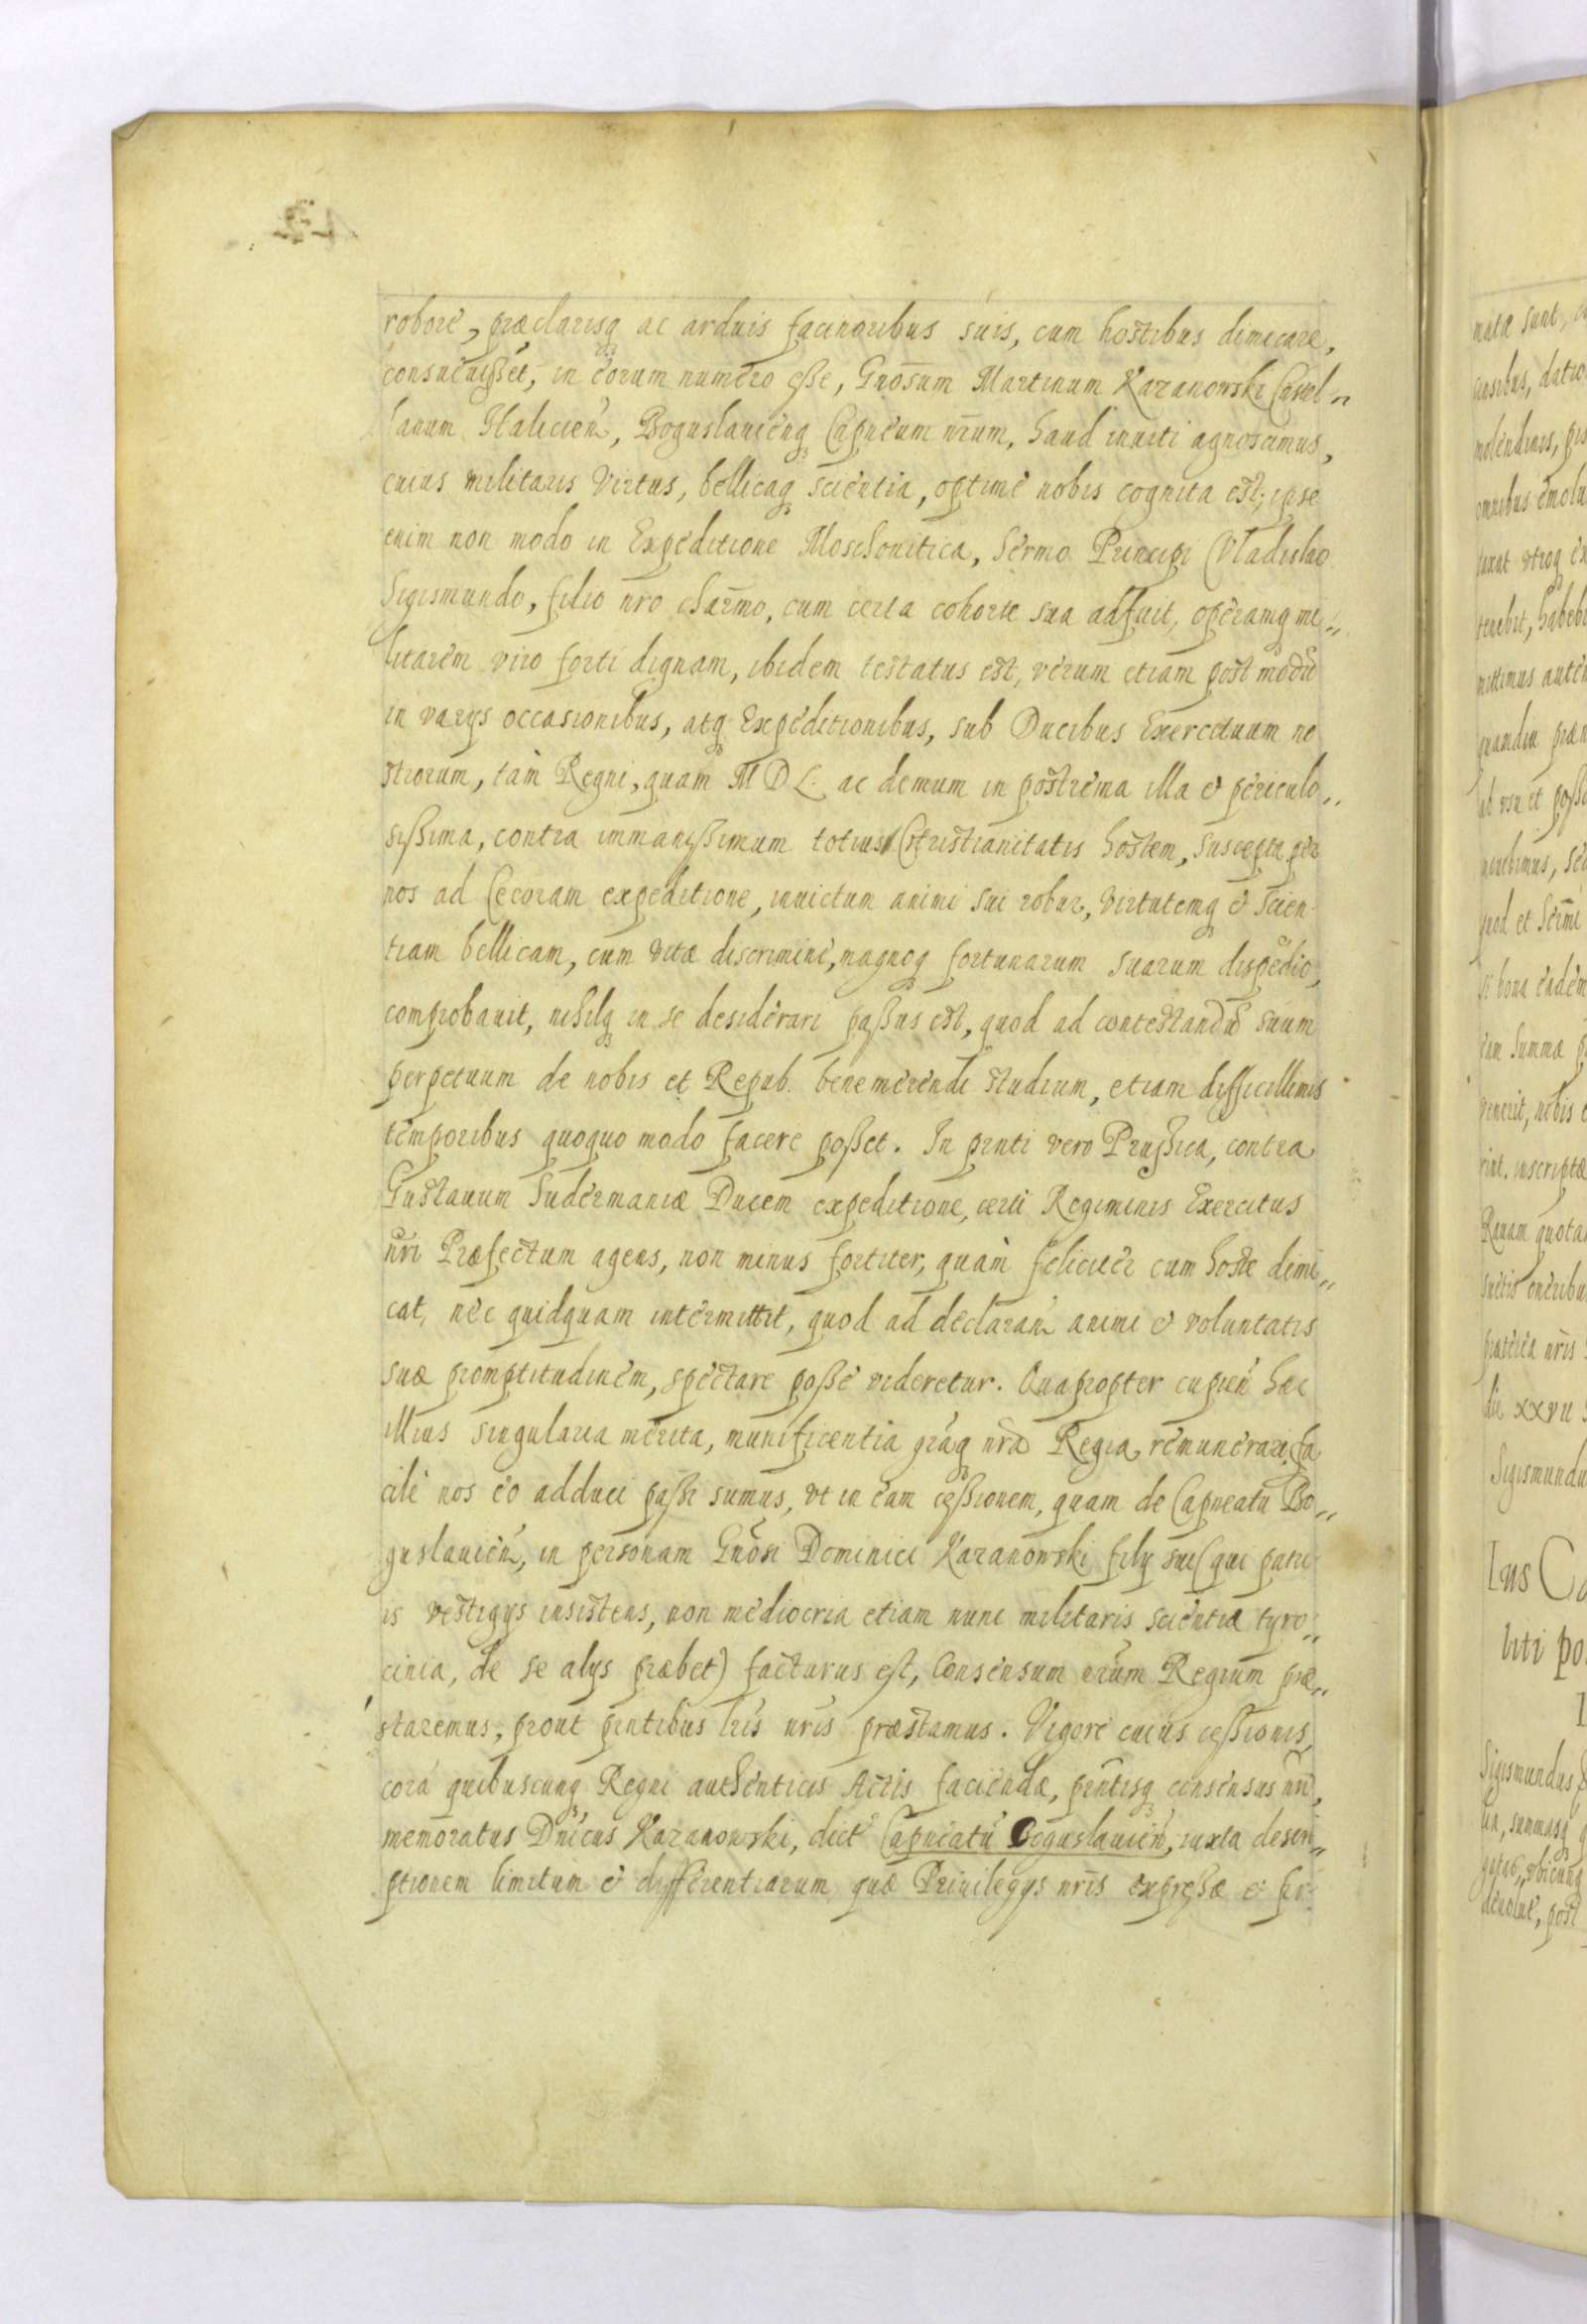 robore, præclarisq ac arduis facinoribus suis, cum hostibus dimicare,
consueuisset, in eorum numero esse, Gnosum Martinum Kazanowski Castel„
lanum Halicien, Boguslauienq Capneum nrum, haud inuiti agnoscimus,
cuius militaris Virtus, bellicaq scientia, optime nobis cognita est; ipse
enim non modo in Expeditione Moschouitica, Sermo Principi Vladislao
Sigismundo, filio nro charmo, cum certa cohorte sua adfuit, operamq mi„
litarem viro forti dignam, ibidem testatus est, verum etiam post modu
in varys occasionibus, atq Expeditionibus, sub Ducibus Exercituum no
strorum, tam Regni, quam M D L. ac demum in postrema illa & periculo„
sissima, contra immanissimum totius Christianitatis hostem, suscepta per
nos ad Cecoram expeditione, inuictum animi sui robur, virtutemq & scien
tiam bellicam, cum vitæ discrimine, magnoq fortunarum suarum dispedio,
comprobauit, nihilq in se desiderari passus est, quod ad contestandu suum
perpetuum de nobis et Repub. benemerendi studium, etiam difficillimis
temporibus quoquo modo facere posset. In pnti vero Prussica, contra
Gustauum Sudermaniæ Ducem expeditione, certi Regiminis Exercitus
nri Præfectum agens, non minus fortiter, quàm feliciter cum hoste dimi„
cat, nec quidquam intermittit, quod ad declaran animi & voluntatis
suæ promptitudinem, spectare posse videretur. Quapropter cupien hæc
illius singularia merita, munificentia graq nra Regia remunerari, fa
cile nos eo adduci passi sumus, vt in eam cessionem, quam de Capneatu Bo„
guslauien, in personam Gnosi Dominici Kazanowski fily sui (qui patri
is vestigys insistens, non mediocria etiam nunc militaris scientiæ tyro„
cinia, de se alys præbet) facturus est, Consensum nrum Regium præ„
staremus, prout pntibus lris nris præstamus. Vigore cuius cessionis,
cora quibuscunq Regni authenticis Actis faciendæ, pntisq consensus nri,
memoratus Dnicus Kazanowski, dict Capneatu Boguslauien, iuxta descri„
ptionem limitum & differentiarum quæ Priuilegys nris expressæ & fir